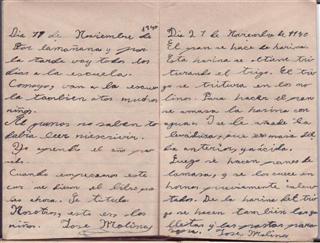 Día 19 de Noviembre de 1940
Por la mañana y por
la tarde voy todos los
días a la escuela.
Como yo, van a la escue
la tambien otros muchos
niños.
Algunos no saben to
davia leer ni escrivir.
Yo aprendí el año pa
sado.
Cuando empezamos este
curso me dieron el libro que
uso ahora. Se titula
Nosotros, esto es los
niños. Jose Molina
Día 27 de Noviembre de 1940
El pan se hace de harina.
Esta harina se obtiene tri
turando el trigo. El tri
go se tritura en los mo
linos. Para hacer el pan
se amasa la harina con
agua. I se le añade la
levadura, que es masa del
día anterior, ya ácida.
Luego se hacen panes de
la masa, y se los cuece en
hornos previamente calen
tados. De la harina del tri
go se hacen tambien las ga
lletas y las pastas para
sopa. Jose Molina